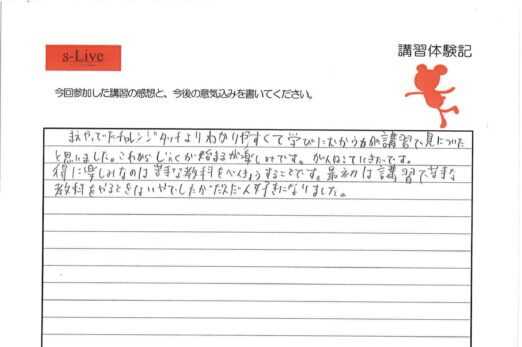 s-Live
講習体験記
今回参加した講習の感想と、今後の意気込みを書いてください。
まえやってたチャレンジタッチよりわかりやすくて学びにむかう力が講習で見についた
と思いました。これからじゅくが始まるが楽しみです。がんばっていきたいです。
得に楽しみなのは苦手な教科をべんきょうすることです。最初は講習で苦手な
教科をやるときはいやでしたがだんだん好きになりました。